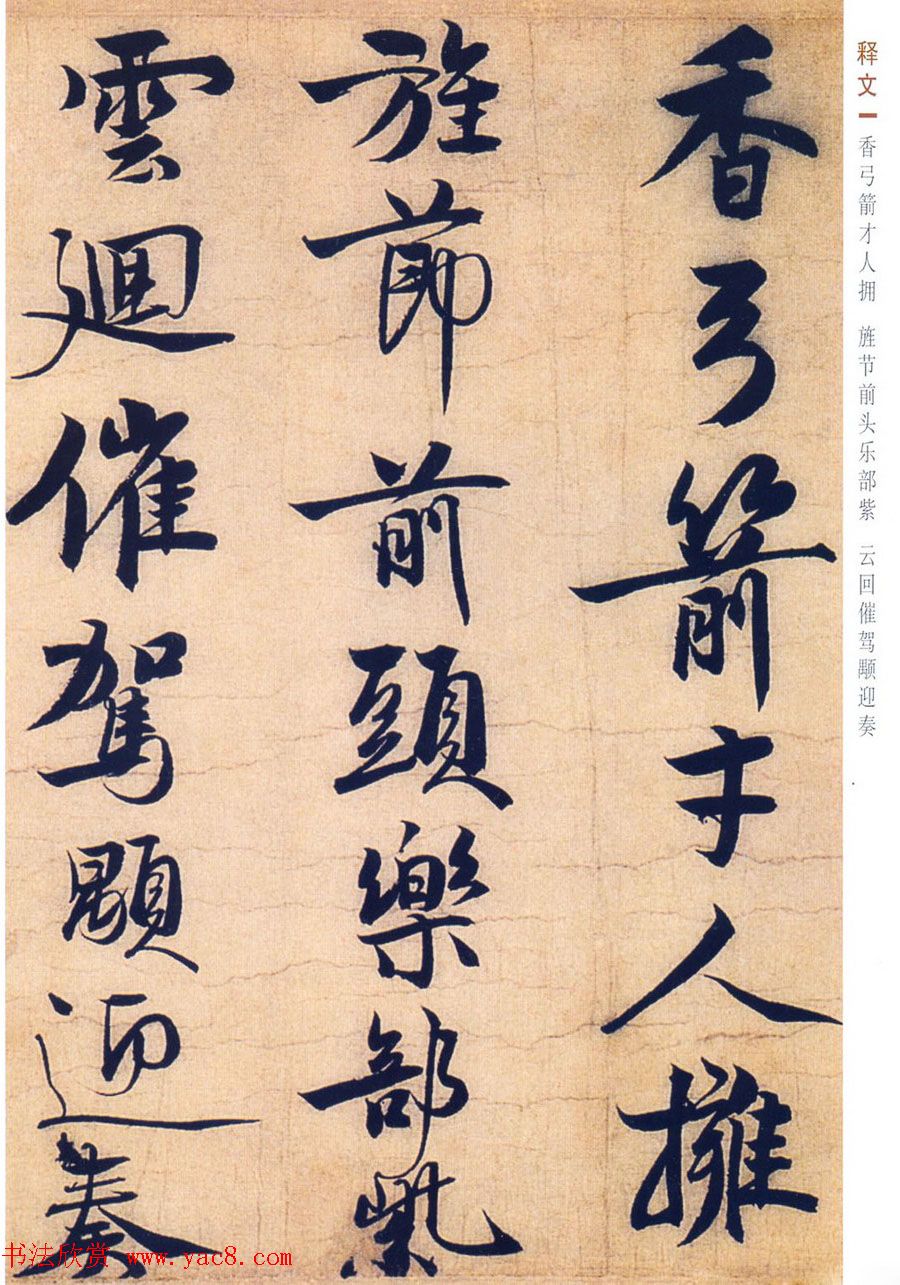 释文
香弓箭才人拥　旌节前头乐部紫　云回催驾颙迎奏
香弓箭才人擁
旌節前頭樂部紫
雲迴催駕顒迎奏
书法欣赏 www.yac8.com